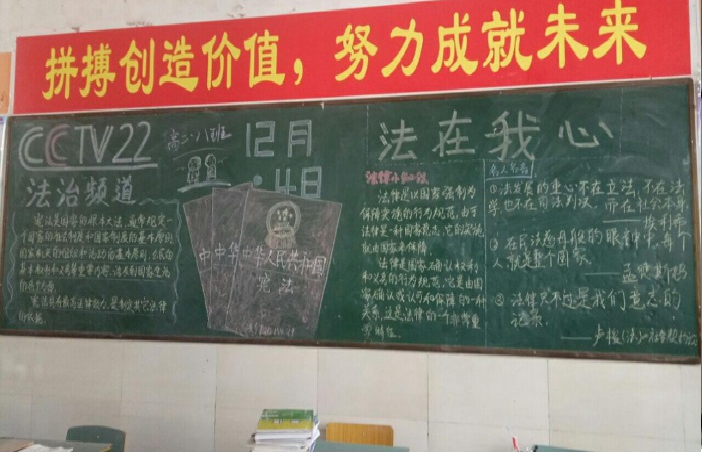 拼搏创造价值，努力成就未来
CCTV22
高二·八班
12月
4日
法治频道
宪法是国家的根本大法，通常规定一
个国家的社会制度和国家制度的基本原则
宪法具有最高法律效力，是制定其它法律
的依据。
中中华中华人民共和国
宪法
法在我心
法律小知识
法律是以国家强制力
保障实施的行为规范，由于
法律是一种国家意志，它的实施
就由国家来保障
法律是国家确认权利
和义务的行为规范，它是由国
家确认或认可和保障的一种
关系，这是法律的一个非常重
要特征。
名人名言
①法发展的重心不在立法，不在法
学，也不在司法判决，而在社会本身
——埃利希
②在民法慈母般的眼睛中，每个
人就是整个国家
——孟德斯鸠
③法律只不过是我们意志的
记录。
——卢梭(法)